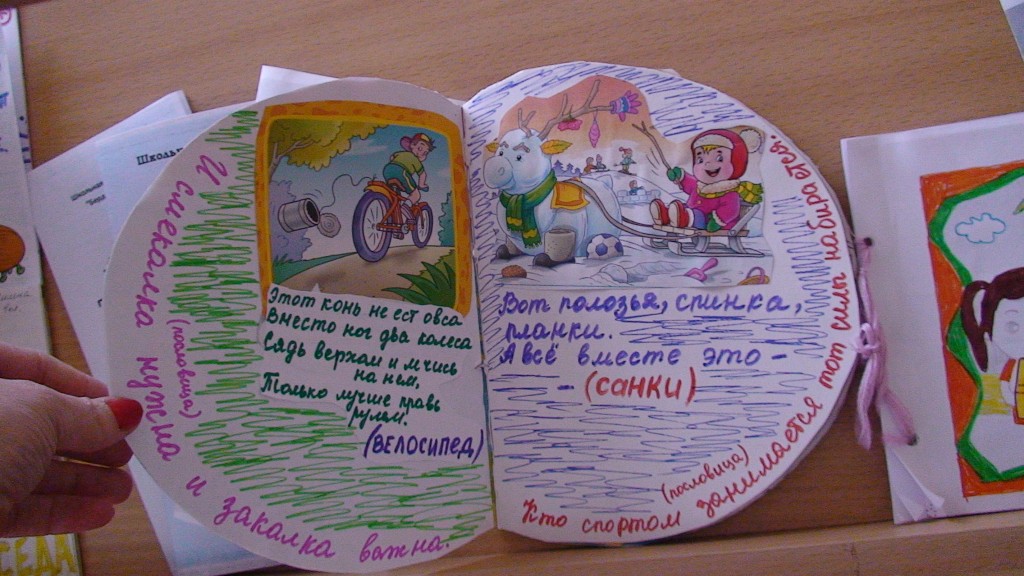 Школь
школьная
И смекалка нужна
(пословица)
и закалка важна.
Этот конь не ест овса
Вместо ног два колеса
Сядь верхом и мчись
на нем,
Только лучше правь
рулем!
(ВЕЛОСИПЕД)
Вот полозья, спинка,
планки.
А всё вместе это -
- (САНКИ)
(пословица)
Кто спортом занимается тот силы набирается.
СЕДА